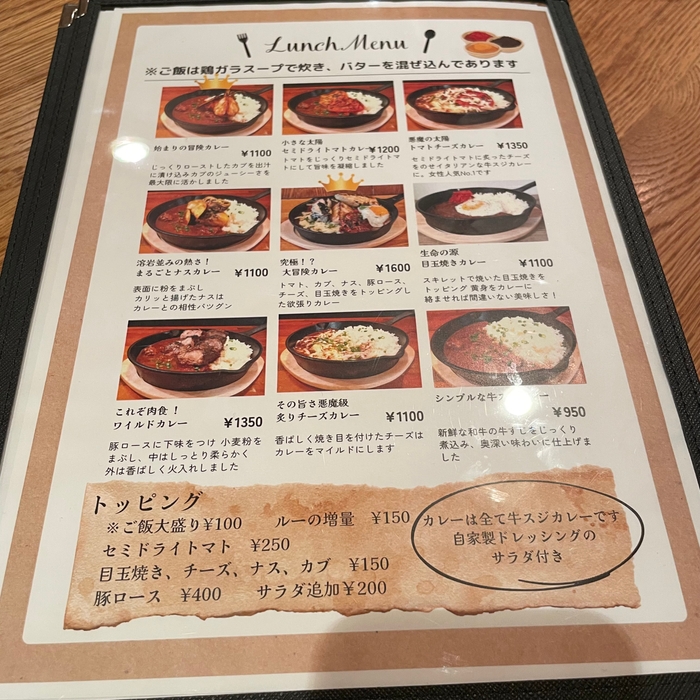 Lunch Menu
※ご飯は鶏ガラスープで炊き、バターを混ぜ込んであります
始まりの冒険カレー ¥1100
じっくりローストしたカブを出汁
に漬け込みカブのジューシーさを
最大限に活かしました
小さな太陽
セミドライトマトカレー ¥1200
トマトをじっくりセミドライトマ
トにして旨味を凝縮しました
悪魔の太陽
トマトチーズカレー ¥1350
セミドライトマトに炙ったチーズ
をのせイタリアンな牛スジカレー
に。女性人気No.1です
溶岩並みの熱さ!
まるごとナスカレー ¥1100
表面に粉をまぶし
カリッと揚げたナスは
カレーとの相性バツグン
究極!?
大冒険カレー ¥1600
トマト、カブ、ナス、豚ロース、
チーズ、目玉焼きをトッピングし
た欲張りカレー
生命の源
目玉焼きカレー ¥1100
スキレットで焼いた目玉焼きを
トッピング 黄身をカレーに
絡ませれば間違いない美味しさ!
これぞ肉食!
ワイルドカレー ¥1350
豚ロースに下味をつけ 小麦粉を
まぶし、中はしっとり柔らかく
外は香ばしく火入れしました
その旨さ悪魔級
炙りチーズカレー ¥1100
香ばしく焼き目を付けたチーズは
カレーをマイルドにします
シンプルな牛ス ¥950
新鮮な和牛の牛すじをじっくり
煮込み、奥深い味わいに仕上げま
した
トッピング
※ご飯大盛り¥100 ルーの増量 ¥150
セミドライトマト ¥250
目玉焼き、チーズ、ナス、カブ ¥150
豚ロース ¥400 サラダ追加¥200
カレーは全て牛スジカレーです
自家製ドレッシングの
サラダ付き